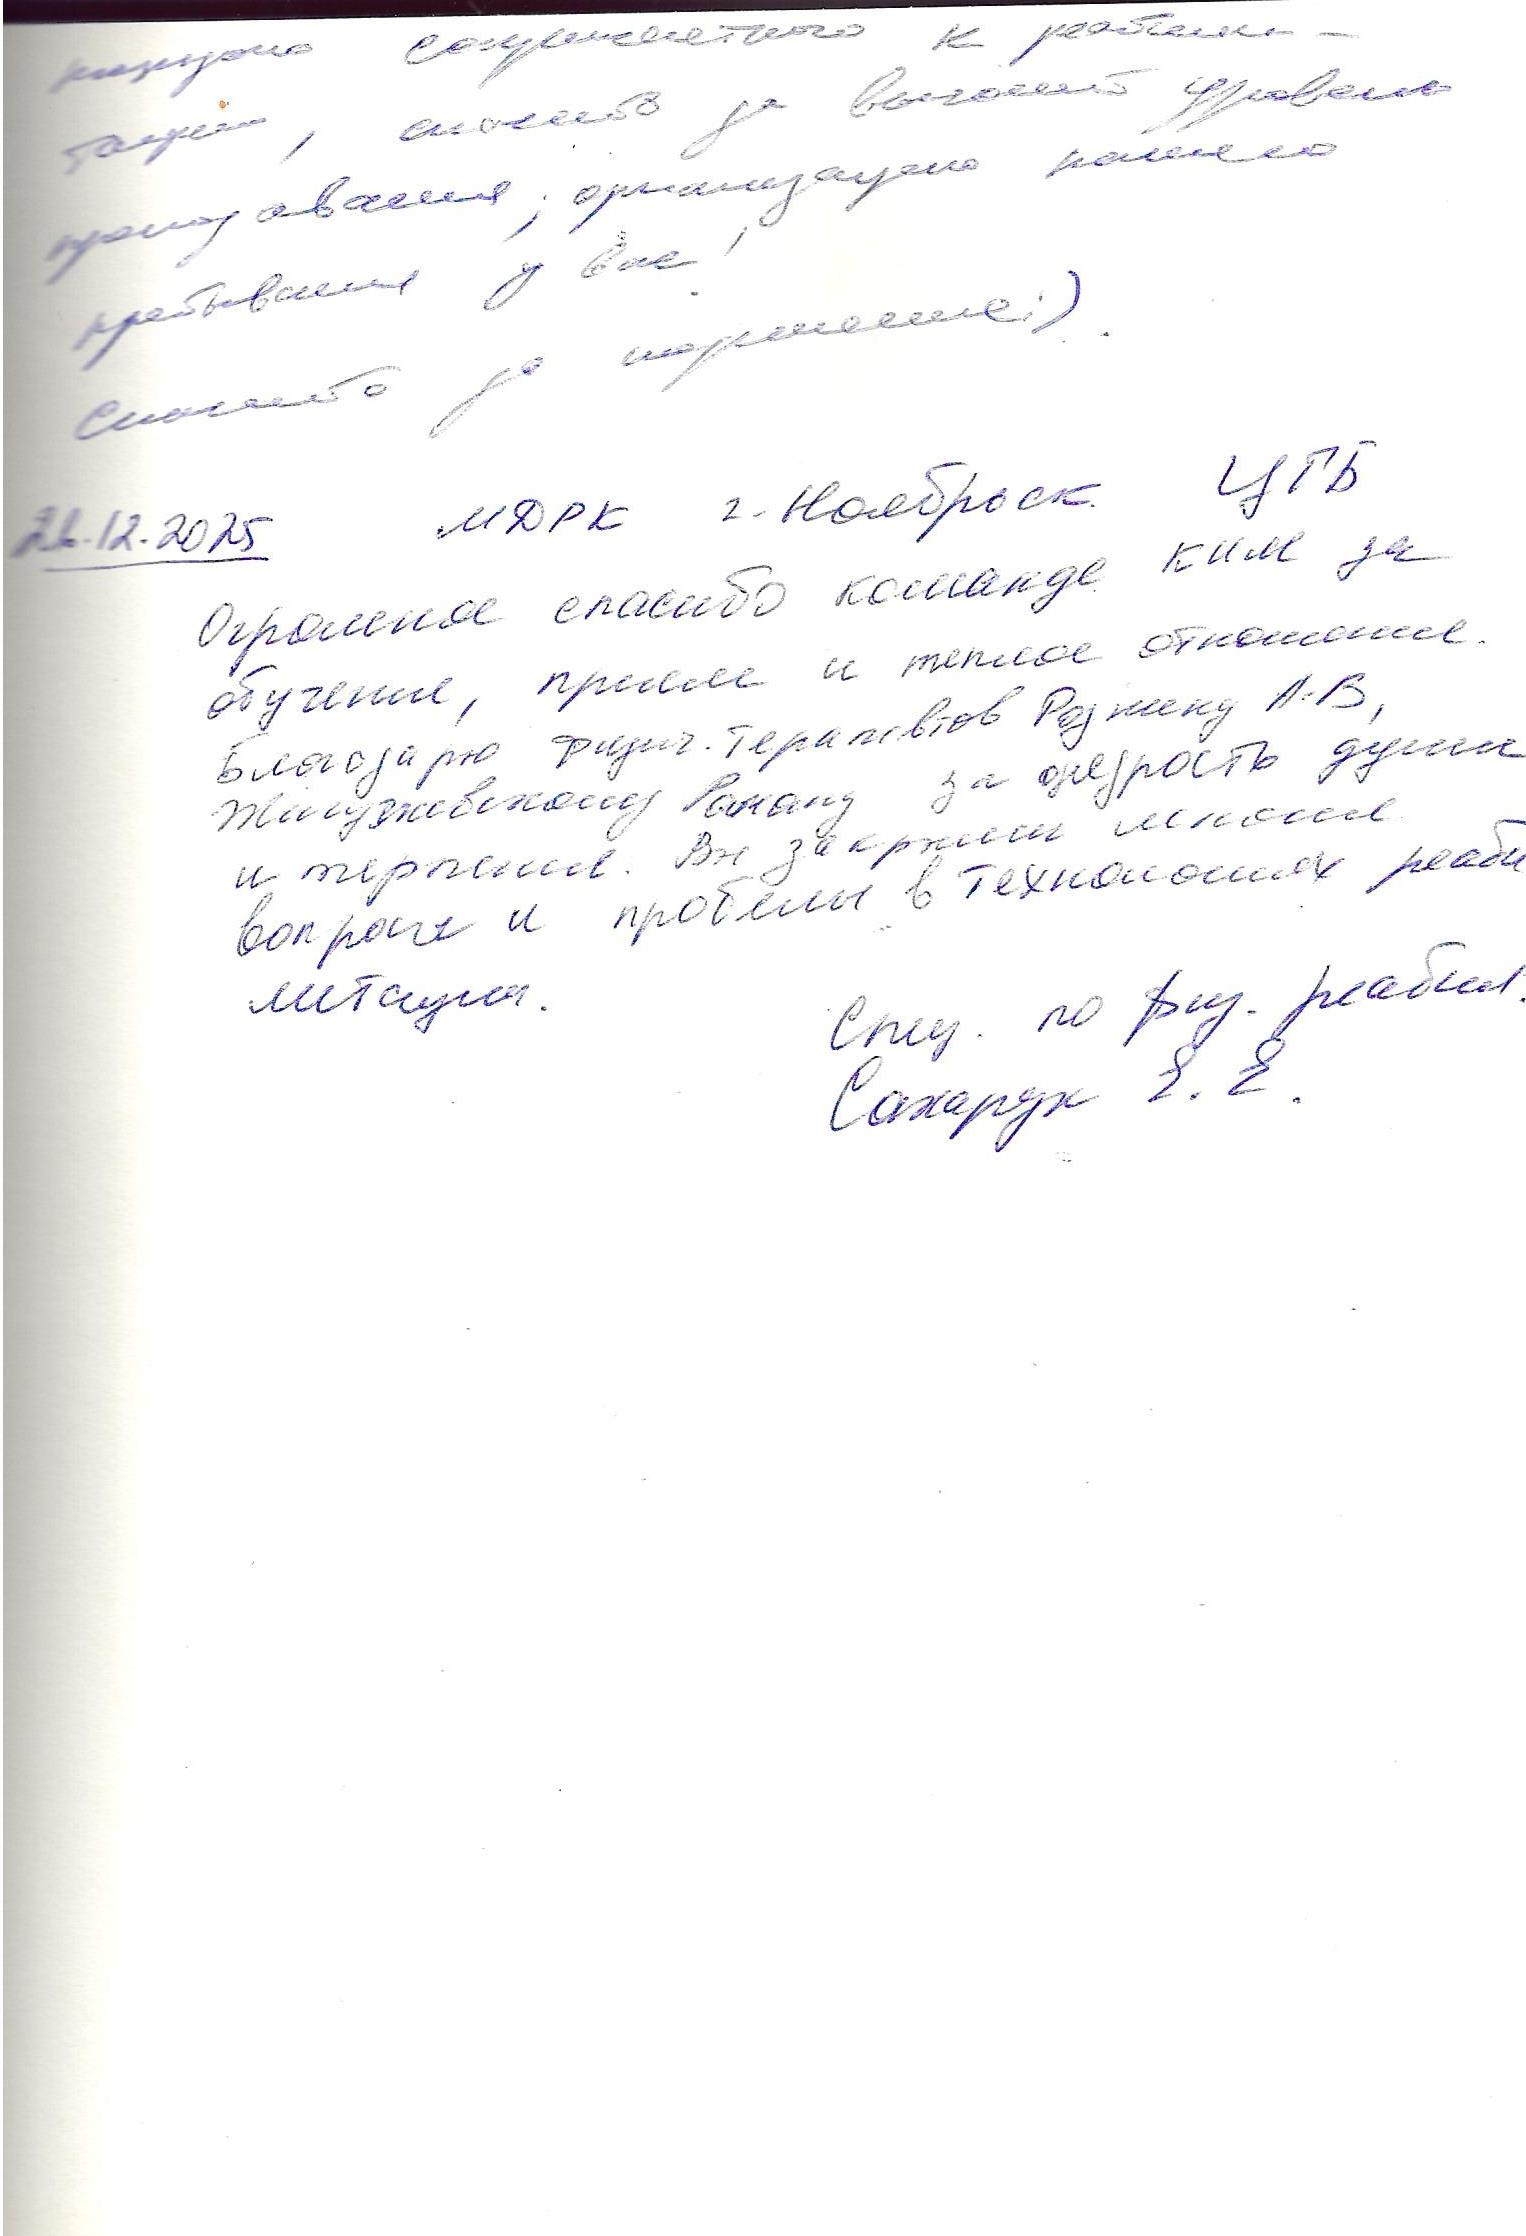 к реабили-
тации, спасибо за высокий уровень
преподавания, организацию нашего
пребывания у Вас!
Спасибо за терпение:).
26.12.2025 МДРК г. Ноябрьск ЦГБ
Огромное спасибо команде КИМ за
обучение, прием и теплое отношение.
Благодарю физич. терапевтов А.В,
Роману за щедрость души
и терпение. Вы закрыли многие
вопросы и пробелы в технологиях реаби
литации.
Спец. по физ. реабил.
Сахарук Е. Е.